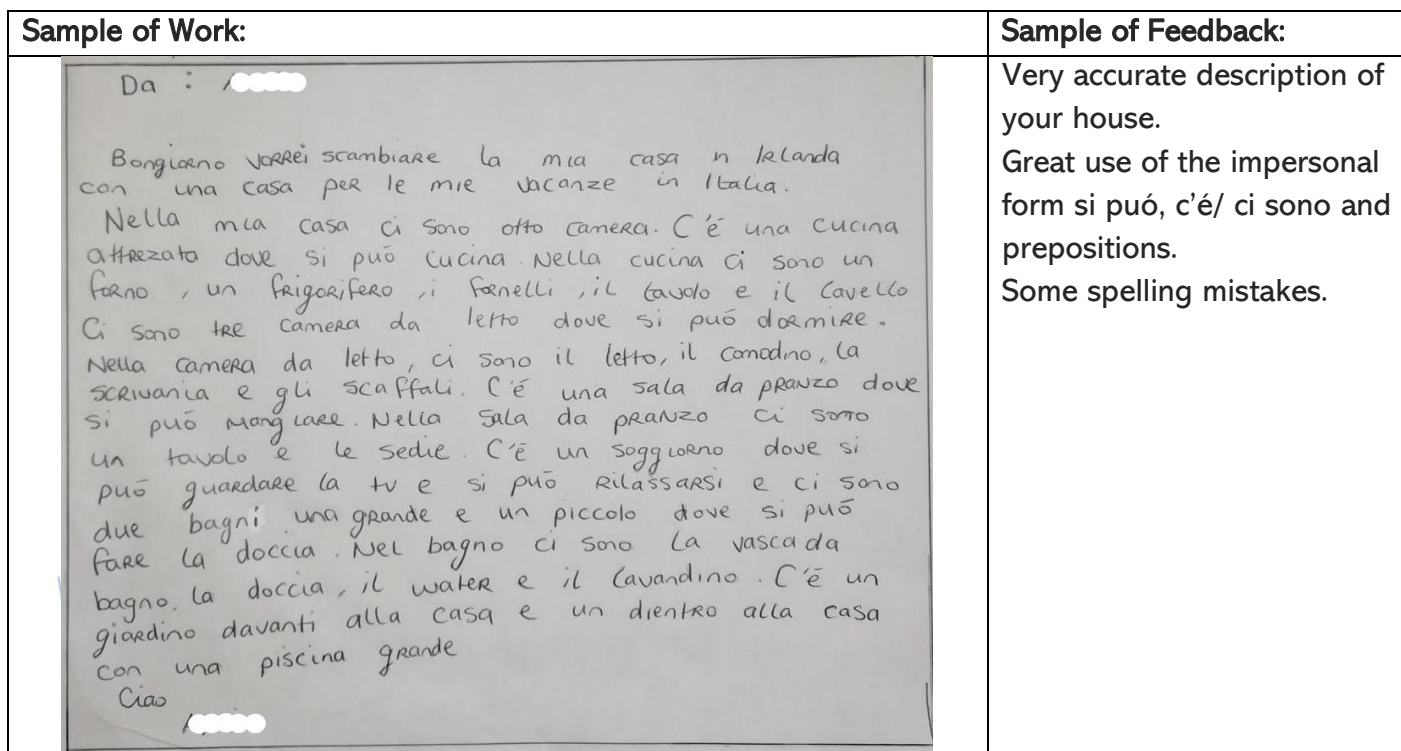 Sample of Work:
Sample of Feedback:
Da :
Bongiorno vorrei scambiare la mia casa n Irlanda
con una casa per le mie vacanze in Italia.
Nella mia casa ci sono otto camera. C'é una cucina
attrezato dove si puó cucina. Nella cucina ci sono un
forno, un frigorifero, i fornelli, il tavolo e il lavello
Ci sono tre camera da letto dove si puó dormire.
Nella camera da letto, ci sono il letto, il comodino, la
scrivania e gli scaffali. C'é una sala da pranzo dove
si puó mangiare. Nella sala da pranzo ci sono
un tavolo e le sedie. C'é un soggiorno dove si
puó guardare la tv e si puó rilassarsi e ci sono
due bagni una grande e un piccolo dove si puó
fare la doccia. Nel bagno ci sono la vasca da
bagno, la doccia, il water e il lavandino. C'é un
giardino davanti alla casa e un dientro alla casa
con una piscina grande
Ciao
Very accurate description of
your house.
Great use of the impersonal
form si puó, c'é/ ci sono and
prepositions.
Some spelling mistakes.